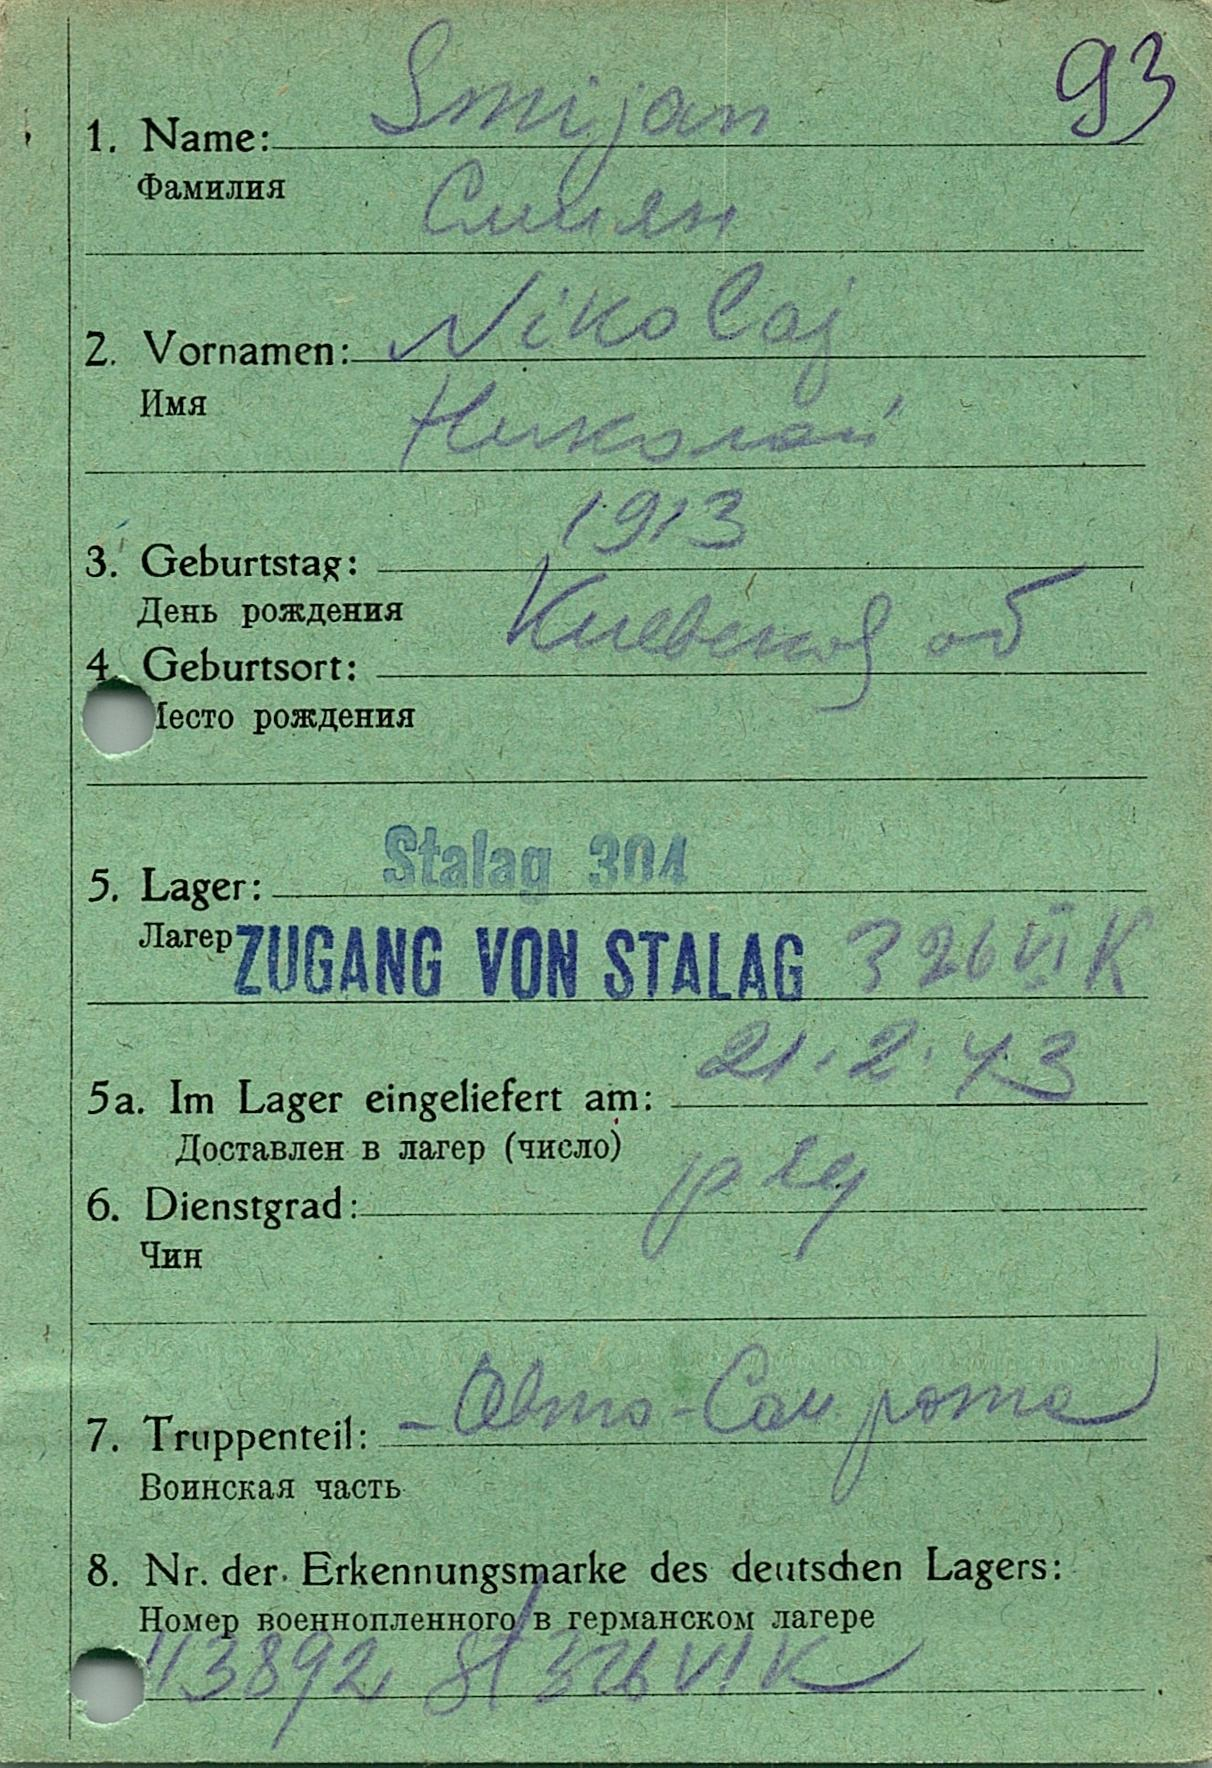 93
1. Name: Smijan
Фамилия
Смиян
2. Vornamen: Nikolaj
Имя
Николай
1913
3. Geburtstag:
День рождения
Киевской об
4. Geburtsort:
Место рождения
5. Lager: Stalag 304
Лагер ZUGANG VON STALAG 326 VI K
21.2.43
5a. Im Lager eingeliefert am:
Доставлен в лагер (число)
6. Dienstgrad:
Чин
7. Truppenteil: – Авто-Сан рота
Воинская часть
8. Nr. der Erkennungsmarke des deutschen Lagers:
Номер военнопленного в германском лагере
113892 St 326 VI K